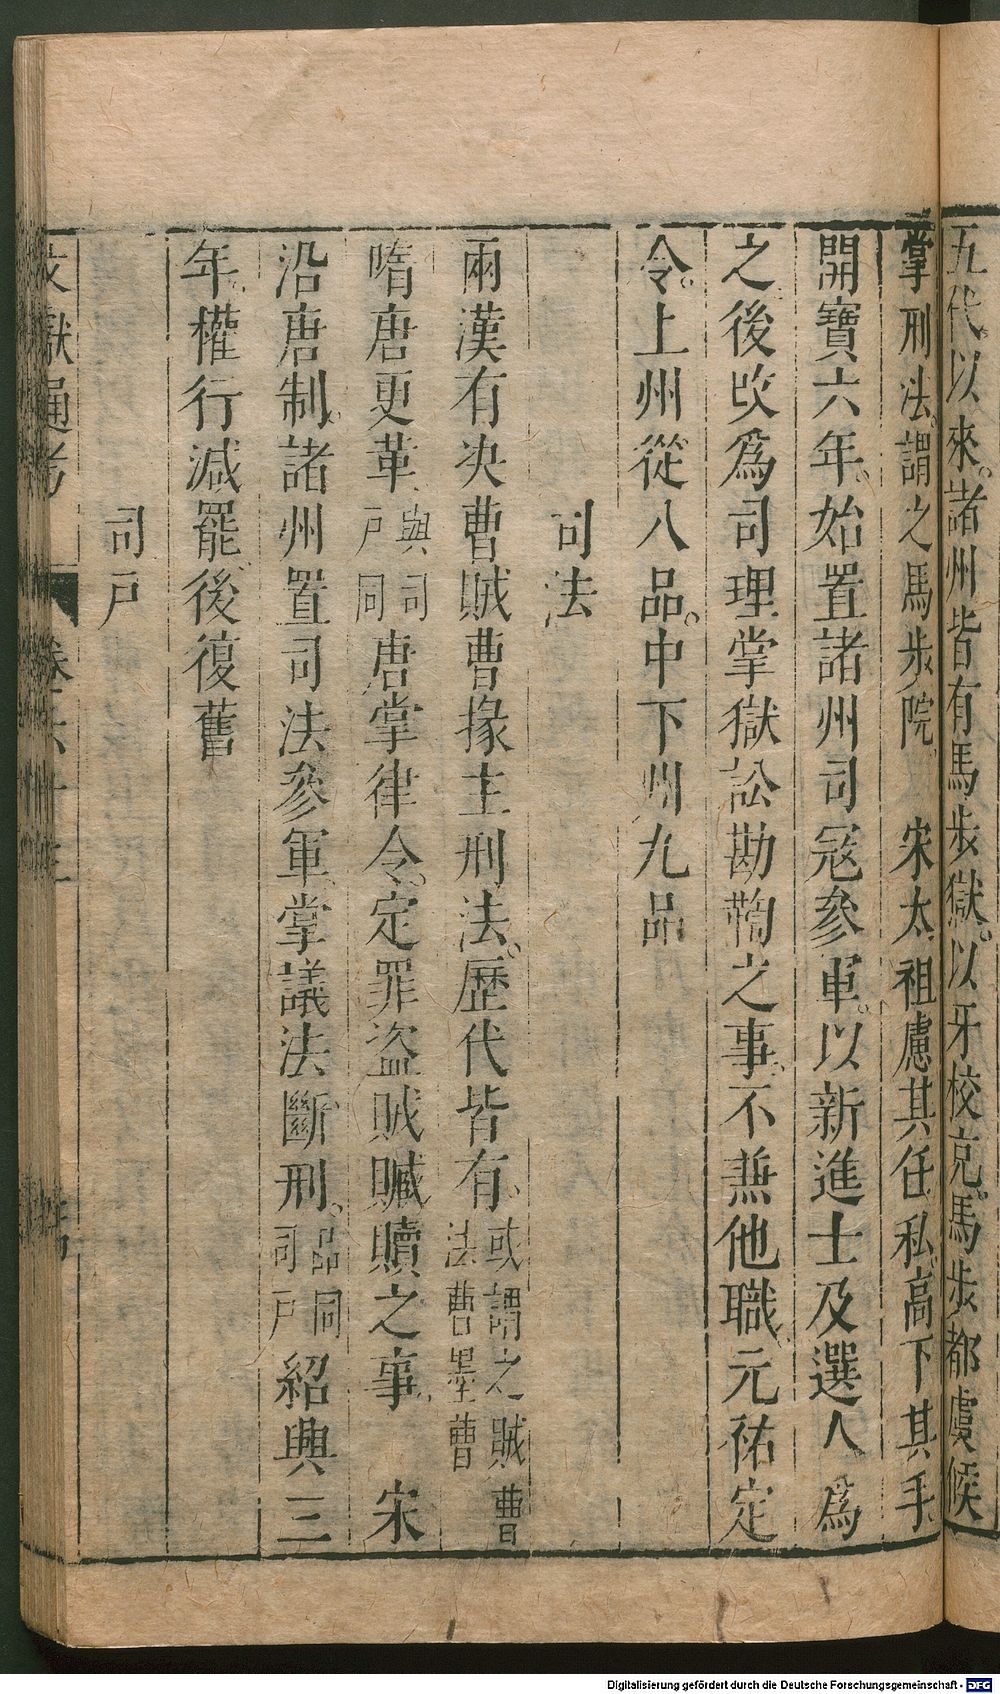 五代以來。諸州皆有馬步獄。以牙校充馬步都虞候
掌刑法。謂之馬步院　宋太祖慮其任私。高下其手
開寶六年。始置諸州司寇參軍。以新進士及選人為
之後改為司理掌獄訟勘鞫之事。不兼他職。元祐定
令。上州從八品。中下州九品
司法
兩漢有決曹賊曹掾主刑法。歷代皆有。或謂之賊曹法曹墨曹
隋唐更革與司戶同唐掌律令。定罪盜賊贓贖之事　宋
沿唐制。諸州置司法參軍掌議法斷刑。品同司戶紹興三
年。權行減罷。後復舊
司戶
文獻通考
Digitalisierung gefördert durch die Deutsche Forschungsgemeinschaft - DFG